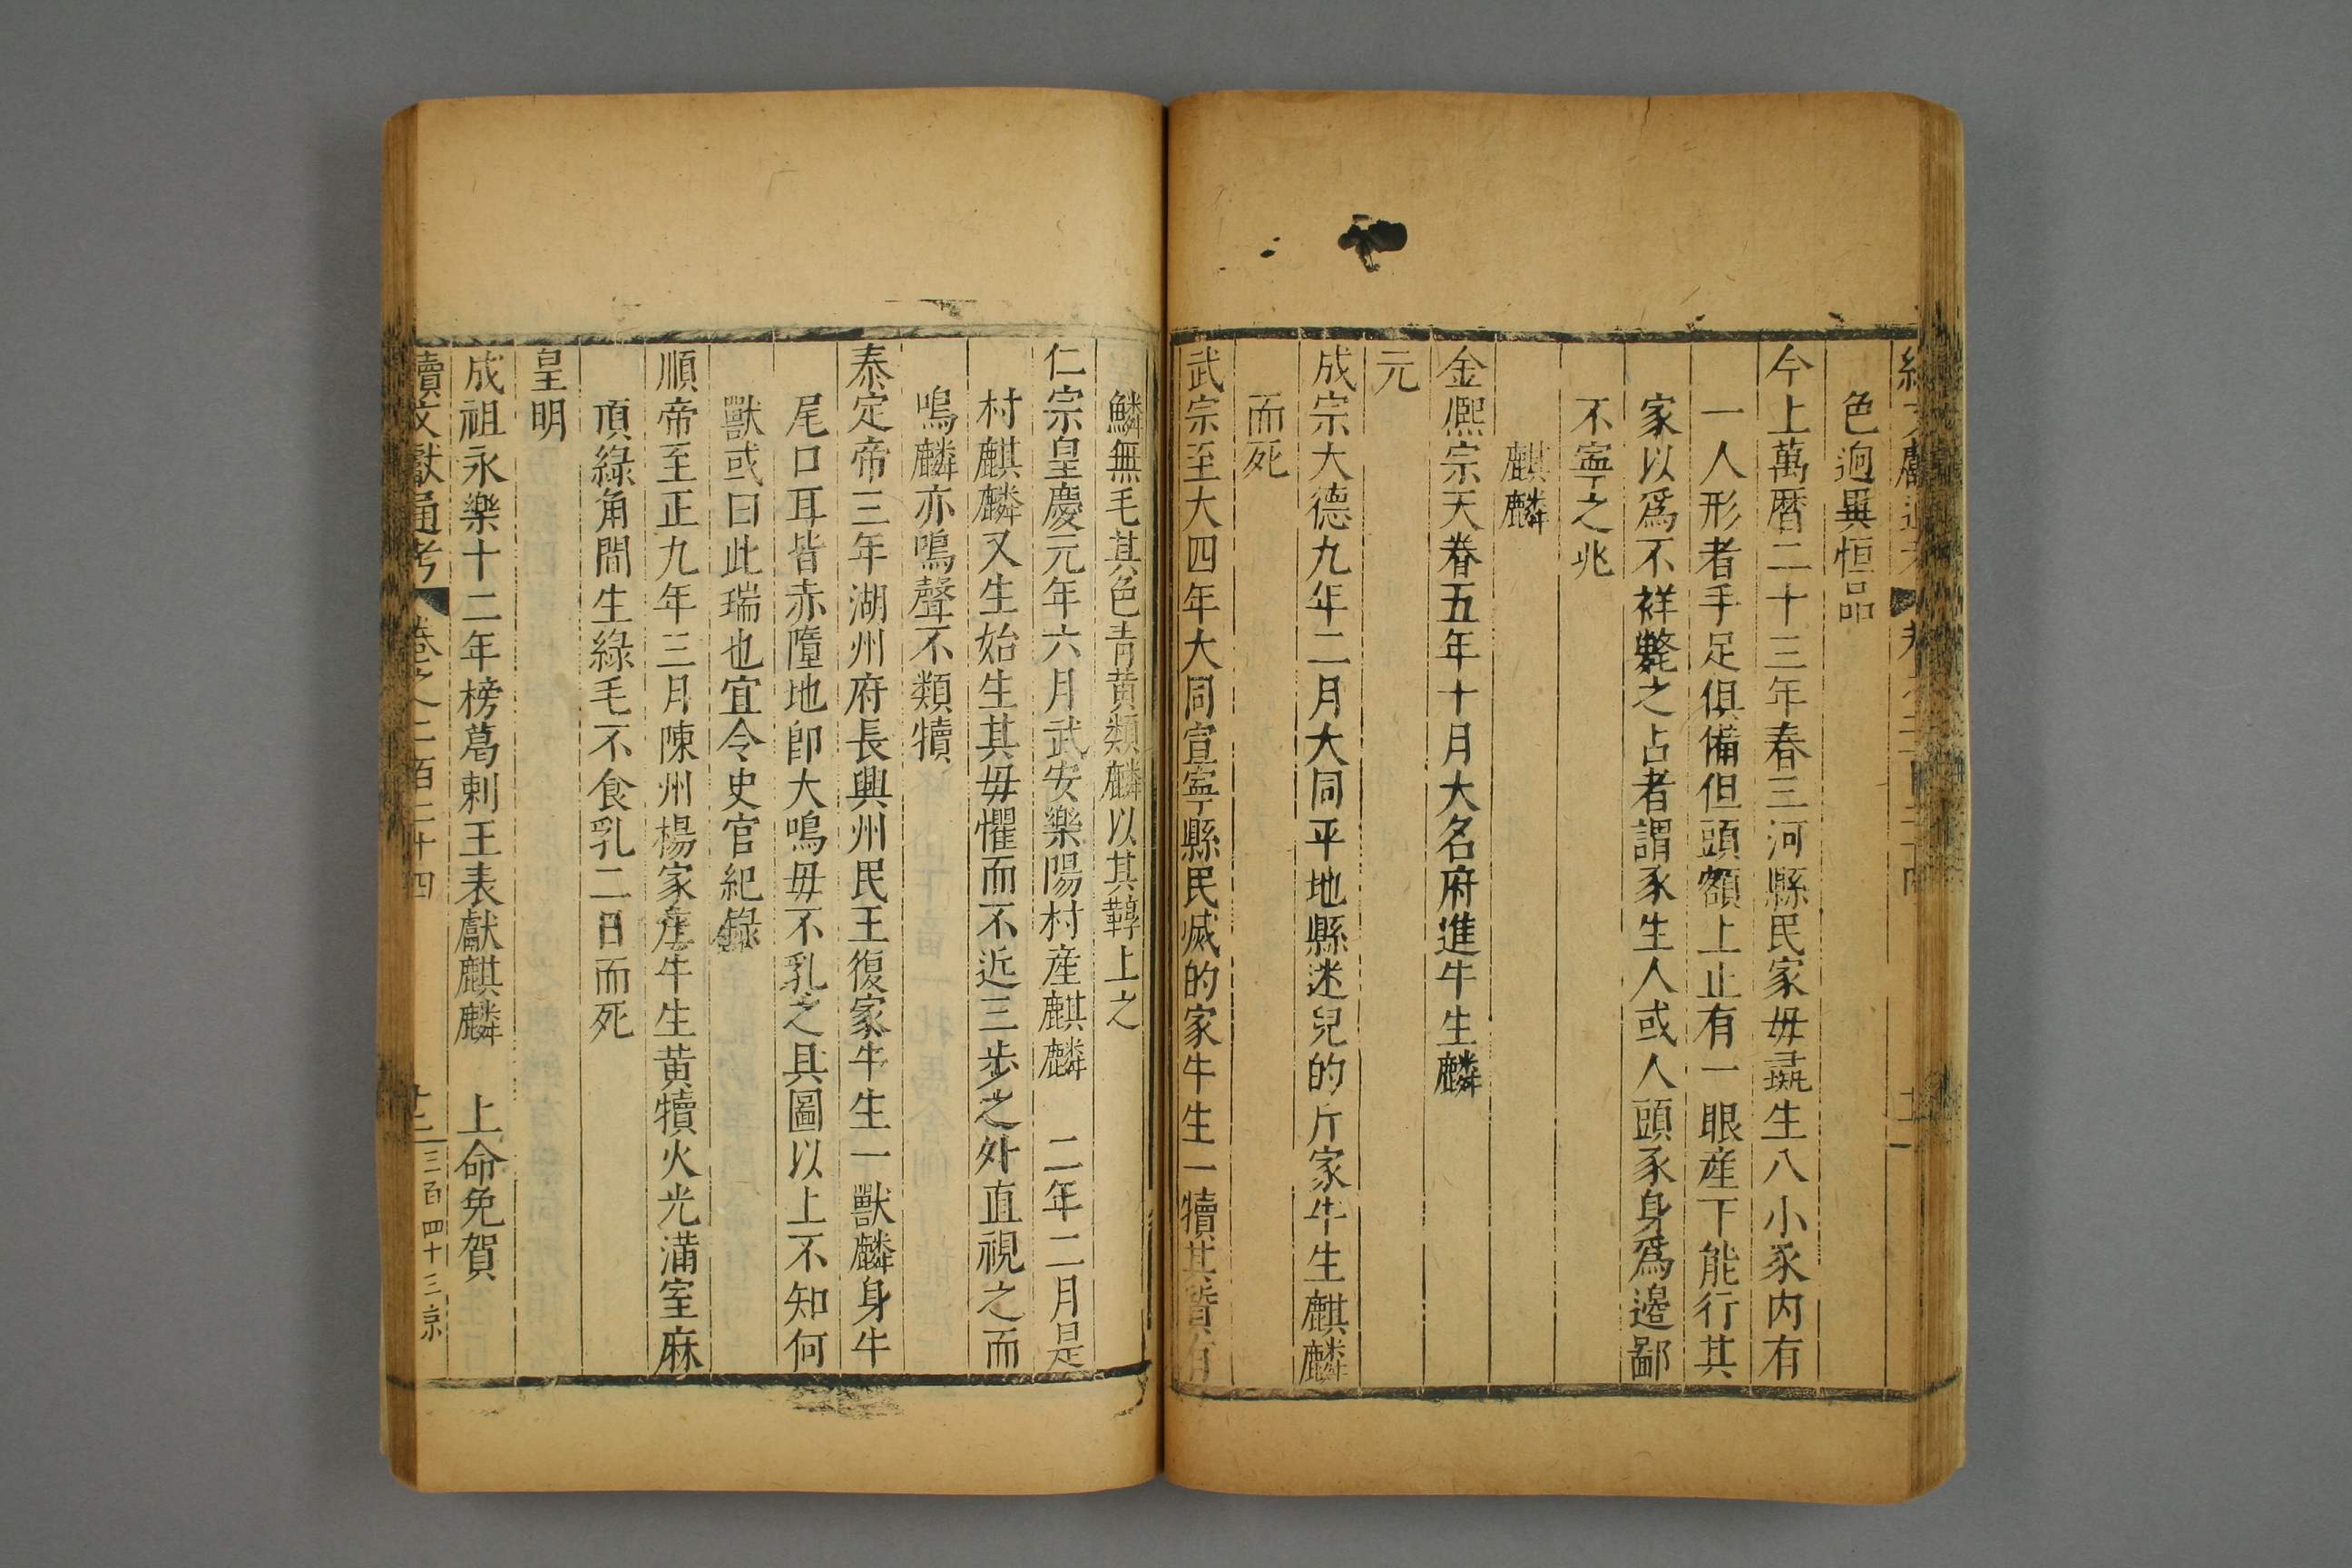 色迥異恒品
今上萬曆二十三年春三河縣民家毋彘生八小豕内有
一人形者手足俱備但頭額上止有一眼産下能行其
家以爲不祥斃之占者謂豕生人或人頭豕身爲邉鄙
不寧之兆
麒麟
金熈宗天眷五年十月大名府進牛生麟
元
成宗大德九年二月大同平地縣迷兒的斤家牛生麒麟
而死
武宗至大四年大同宣寧縣民滅的家牛生一犢其質有
鱗無毛其色青黄類麟以其鞟上之
仁宗皇慶元年六月武安樂陽村産麒麟　二年二月是
村麒麟又生始生其毋懼而不近三步之外直視之而
鳴麟亦鳴聲不類犢
泰定帝三年湖州府長興州民王復家牛生一獸麟身牛
尾口耳皆赤墮地卽大鳴毋不乳之具圖以上不知何
獸或曰此瑞也宜令史官紀錄
順帝至正九年三月陳州楊家庄牛生黄犢火光滿室麻
頂綠角間生綠毛不食乳二日而死
皇明
成祖永樂十二年榜葛剌王表獻麒麟　上命免賀
續文獻通考　卷之二百二十四　廿二　三百四十三　京